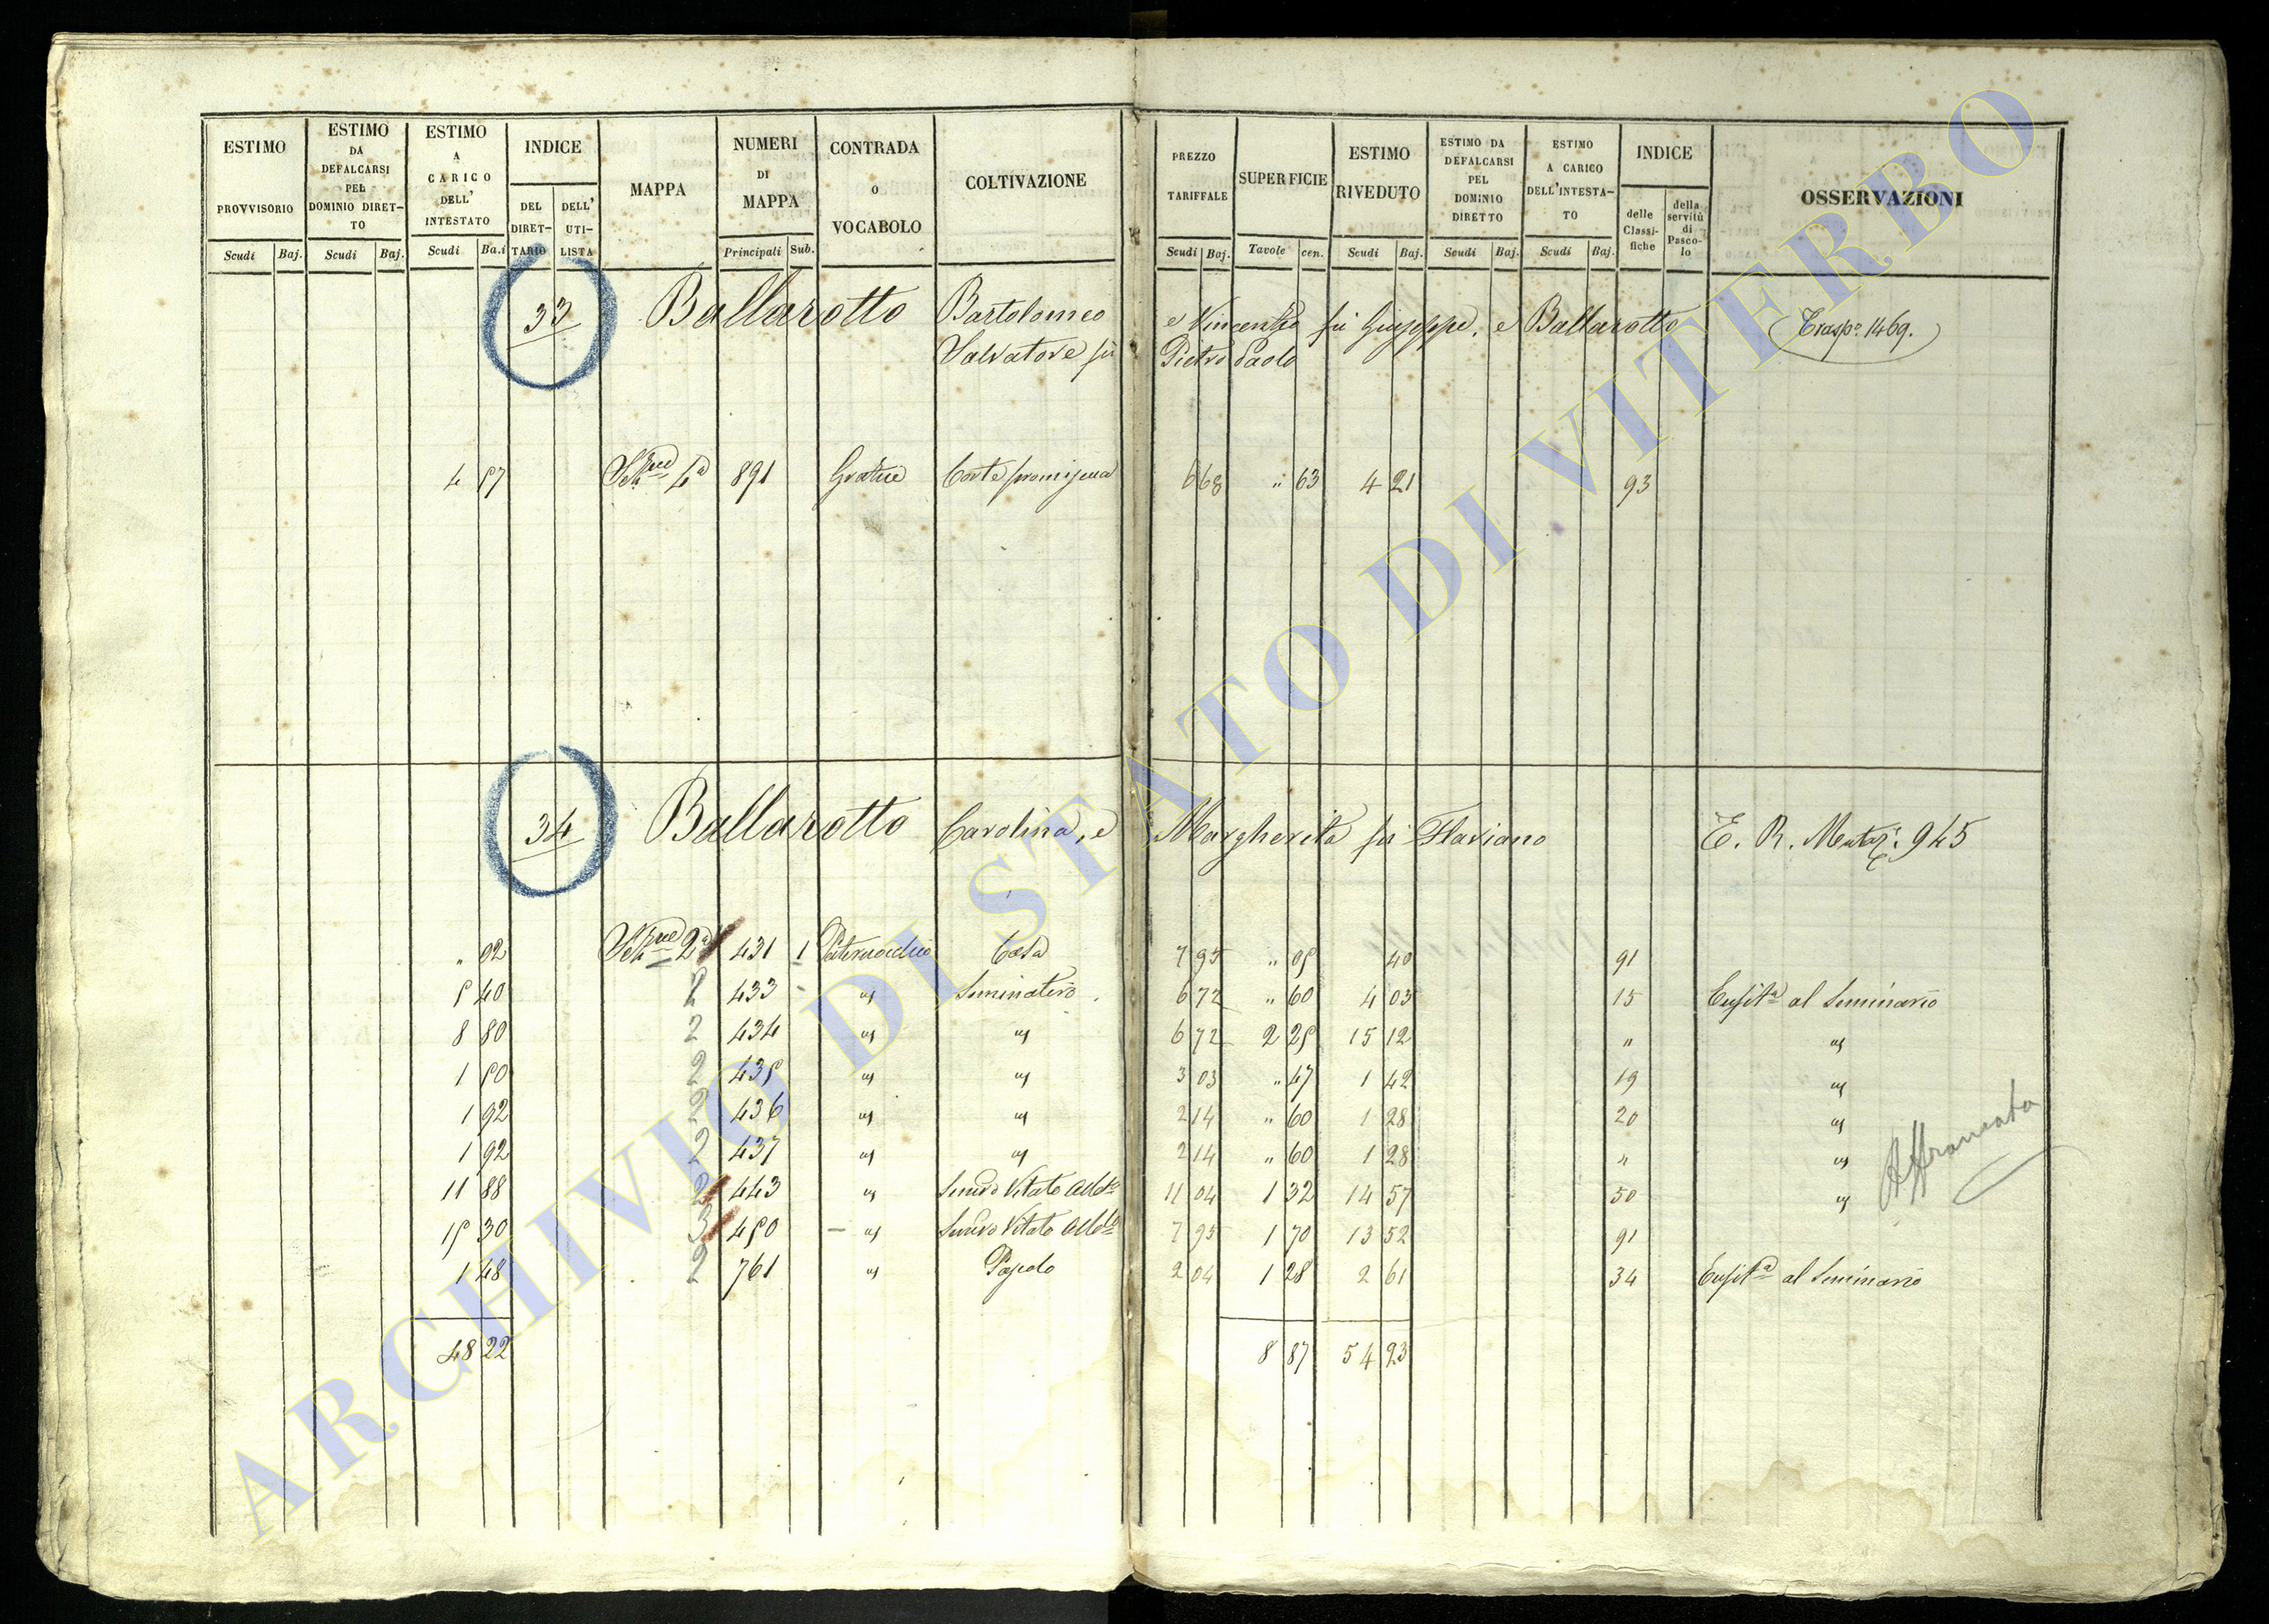 ESTIMO PROVVISORIO Scudi Baj.
ESTIMO DA DEFALCARSI PEL DOMINIO DIRET-TO Scudi Baj.
ESTIMO A CARICO DELL' INTESTATO Scudi Ba.i
INDICE DEL DIRET-TARIO DELL' UTI-LISTA
MAPPA
NUMERI DI MAPPA Principali Sub.
CONTRADA O VOCABOLO
COLTIVAZIONE
PREZZO TARIFFALE Scudi Baj.
SUPERFICIE Tavole cen.
ESTIMO RIVEDUTO Scudi Baj.
ESTIMO DA DEFALCARSI PEL DOMINIO DIRETTO Scudi Baj.
ESTIMO A CARICO DELL'INTESTA-TO Scudi Baj.
INDICE delle Classi-fiche della servitù di Pasco-lo
OSSERVAZIONI
33 Ballarotto Bartolomeo e Vincenzo fu Giuseppe, e Ballarotto Trasp. 1469.
Salvatore fu Pietro Paolo
4 57 4a 891 Grotue Corte promiscua 6 68 " 63 4 21 93
34 Ballarotto Carolina, e Margherita fu Flaviano E. R. 945
" 92 2a 431 1 Casa 7 95 " 05 40 91
5 40 2 433 us Seminativo 6 72 " 60 4 03 15 al Seminario
8 80 2 434 us us 6 72 2 25 15 12 " us
1 50 2 435 us us 3 03 " 47 1 42 19 us
1 92 2 436 us us 2 14 " 60 1 28 20 us
1 92 2 437 us us 2 14 " 60 1 28 " us
11 88 2 443 us Vitato 11 04 1 32 14 57 50 us
Affrancata
15 30 3 450 us Vitato 7 95 1 70 13 52 91
1 48 2 761 us Pascolo 2 04 1 28 2 61 34 al Seminario
48 22 8 87 54 23
ARCHIVIO DI STATO DI VITERBO